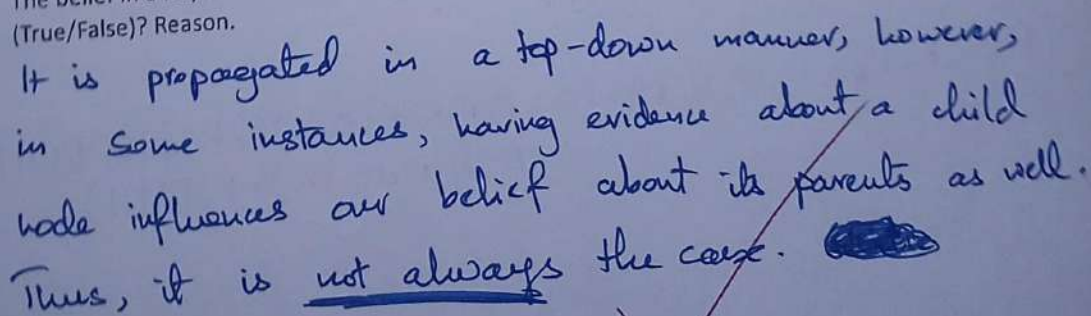 (True/False)? Reason.
It is propagated in a top-down manner, however,
in some instances, having evidence about a child
node influences our belief about its parents as well.
Thus, it is not always the case.